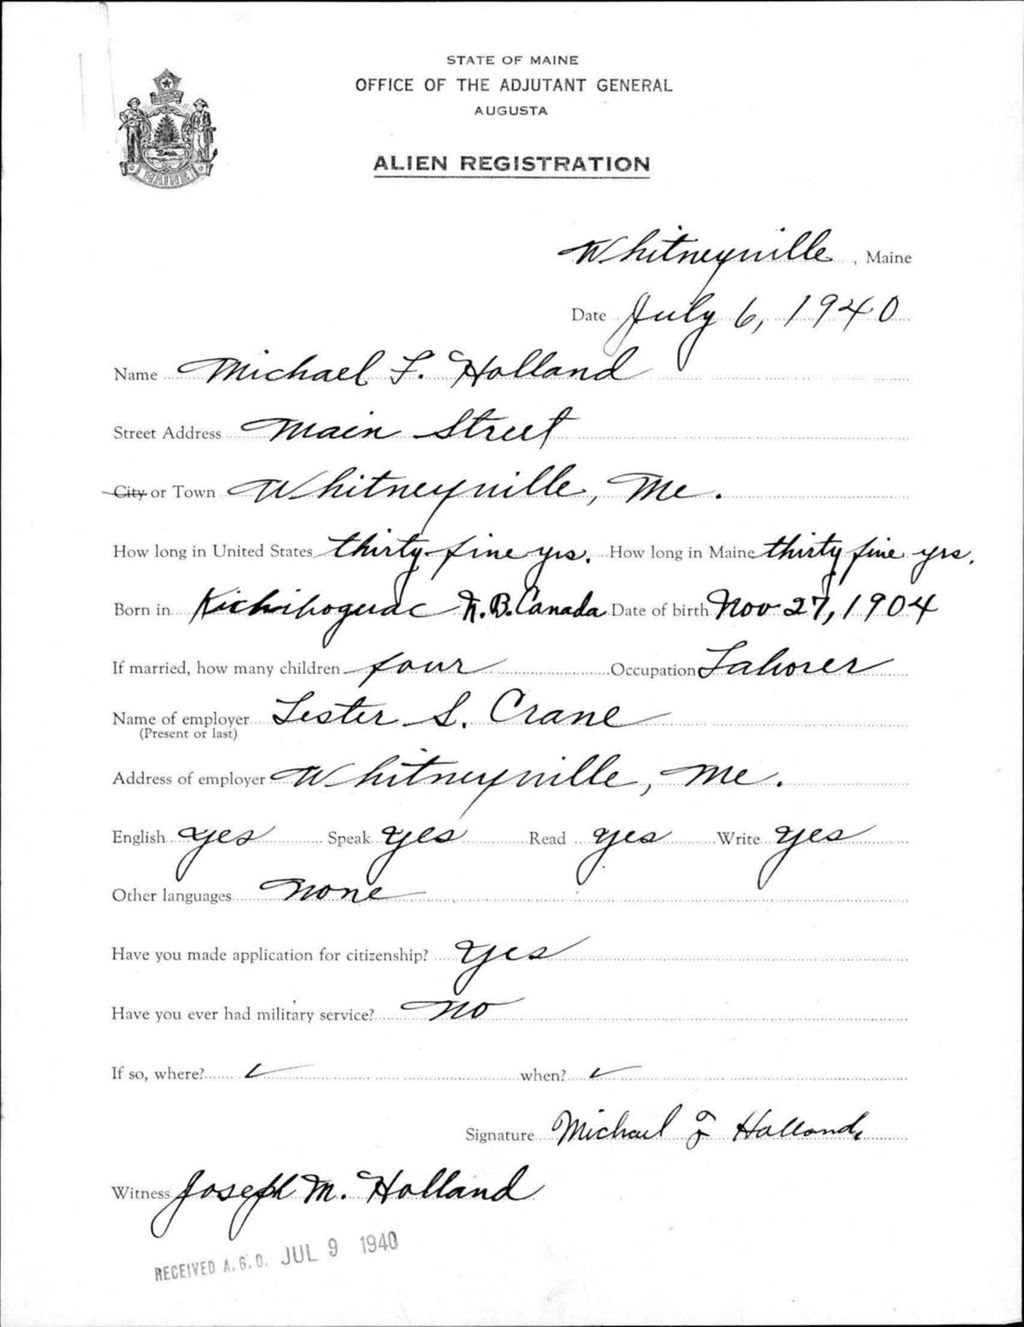 STATE OF MAINE
OFFICE OF THE ADJUTANT GENERAL
AUGUSTA
ALIEN REGISTRATION
MAINE
Whitneyville, Maine
Date July 6, 1940
Name Michael F. Holland
Street Address Main Street
City or Town Whitneyville, Me.
How long in United States thirty-five yrs. How long in Maine thirty five yrs.
Born in N.B. Canada Date of birth Nov 27, 1904
If married, how many children four Occupation Laborer
Name of employer Lester S. Crane
(Present or last)
Address of employer Whitneyville, Me.
English yes Speak yes Read yes Write yes
Other languages none
Have you made application for citizenship? Yes
Have you ever had military service? No
If so, where? ✓ when? ✓
Signature Michael F Holland
Witness Joseph M. Holland
RECEIVED A.G.O. JUL 9 1940